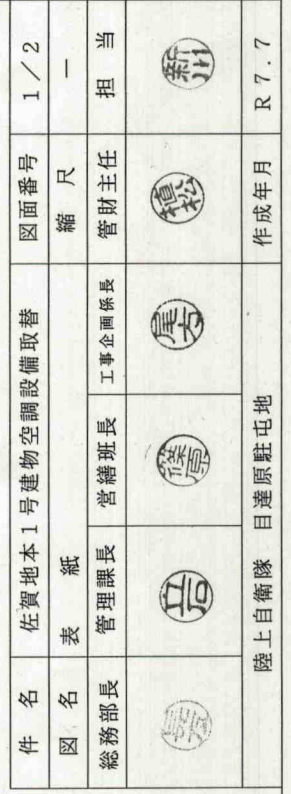 件 名 佐賀地本1号建物空調設備取替 図面番号 1/2
図 名 表 紙 縮 尺 ―
総務部長 管理課長 営繕班長 工事企画係長 管財主任 担 当
篠原 尾方 植松 新川
陸上自衛隊 目達原駐屯地 作成年月 R7.7